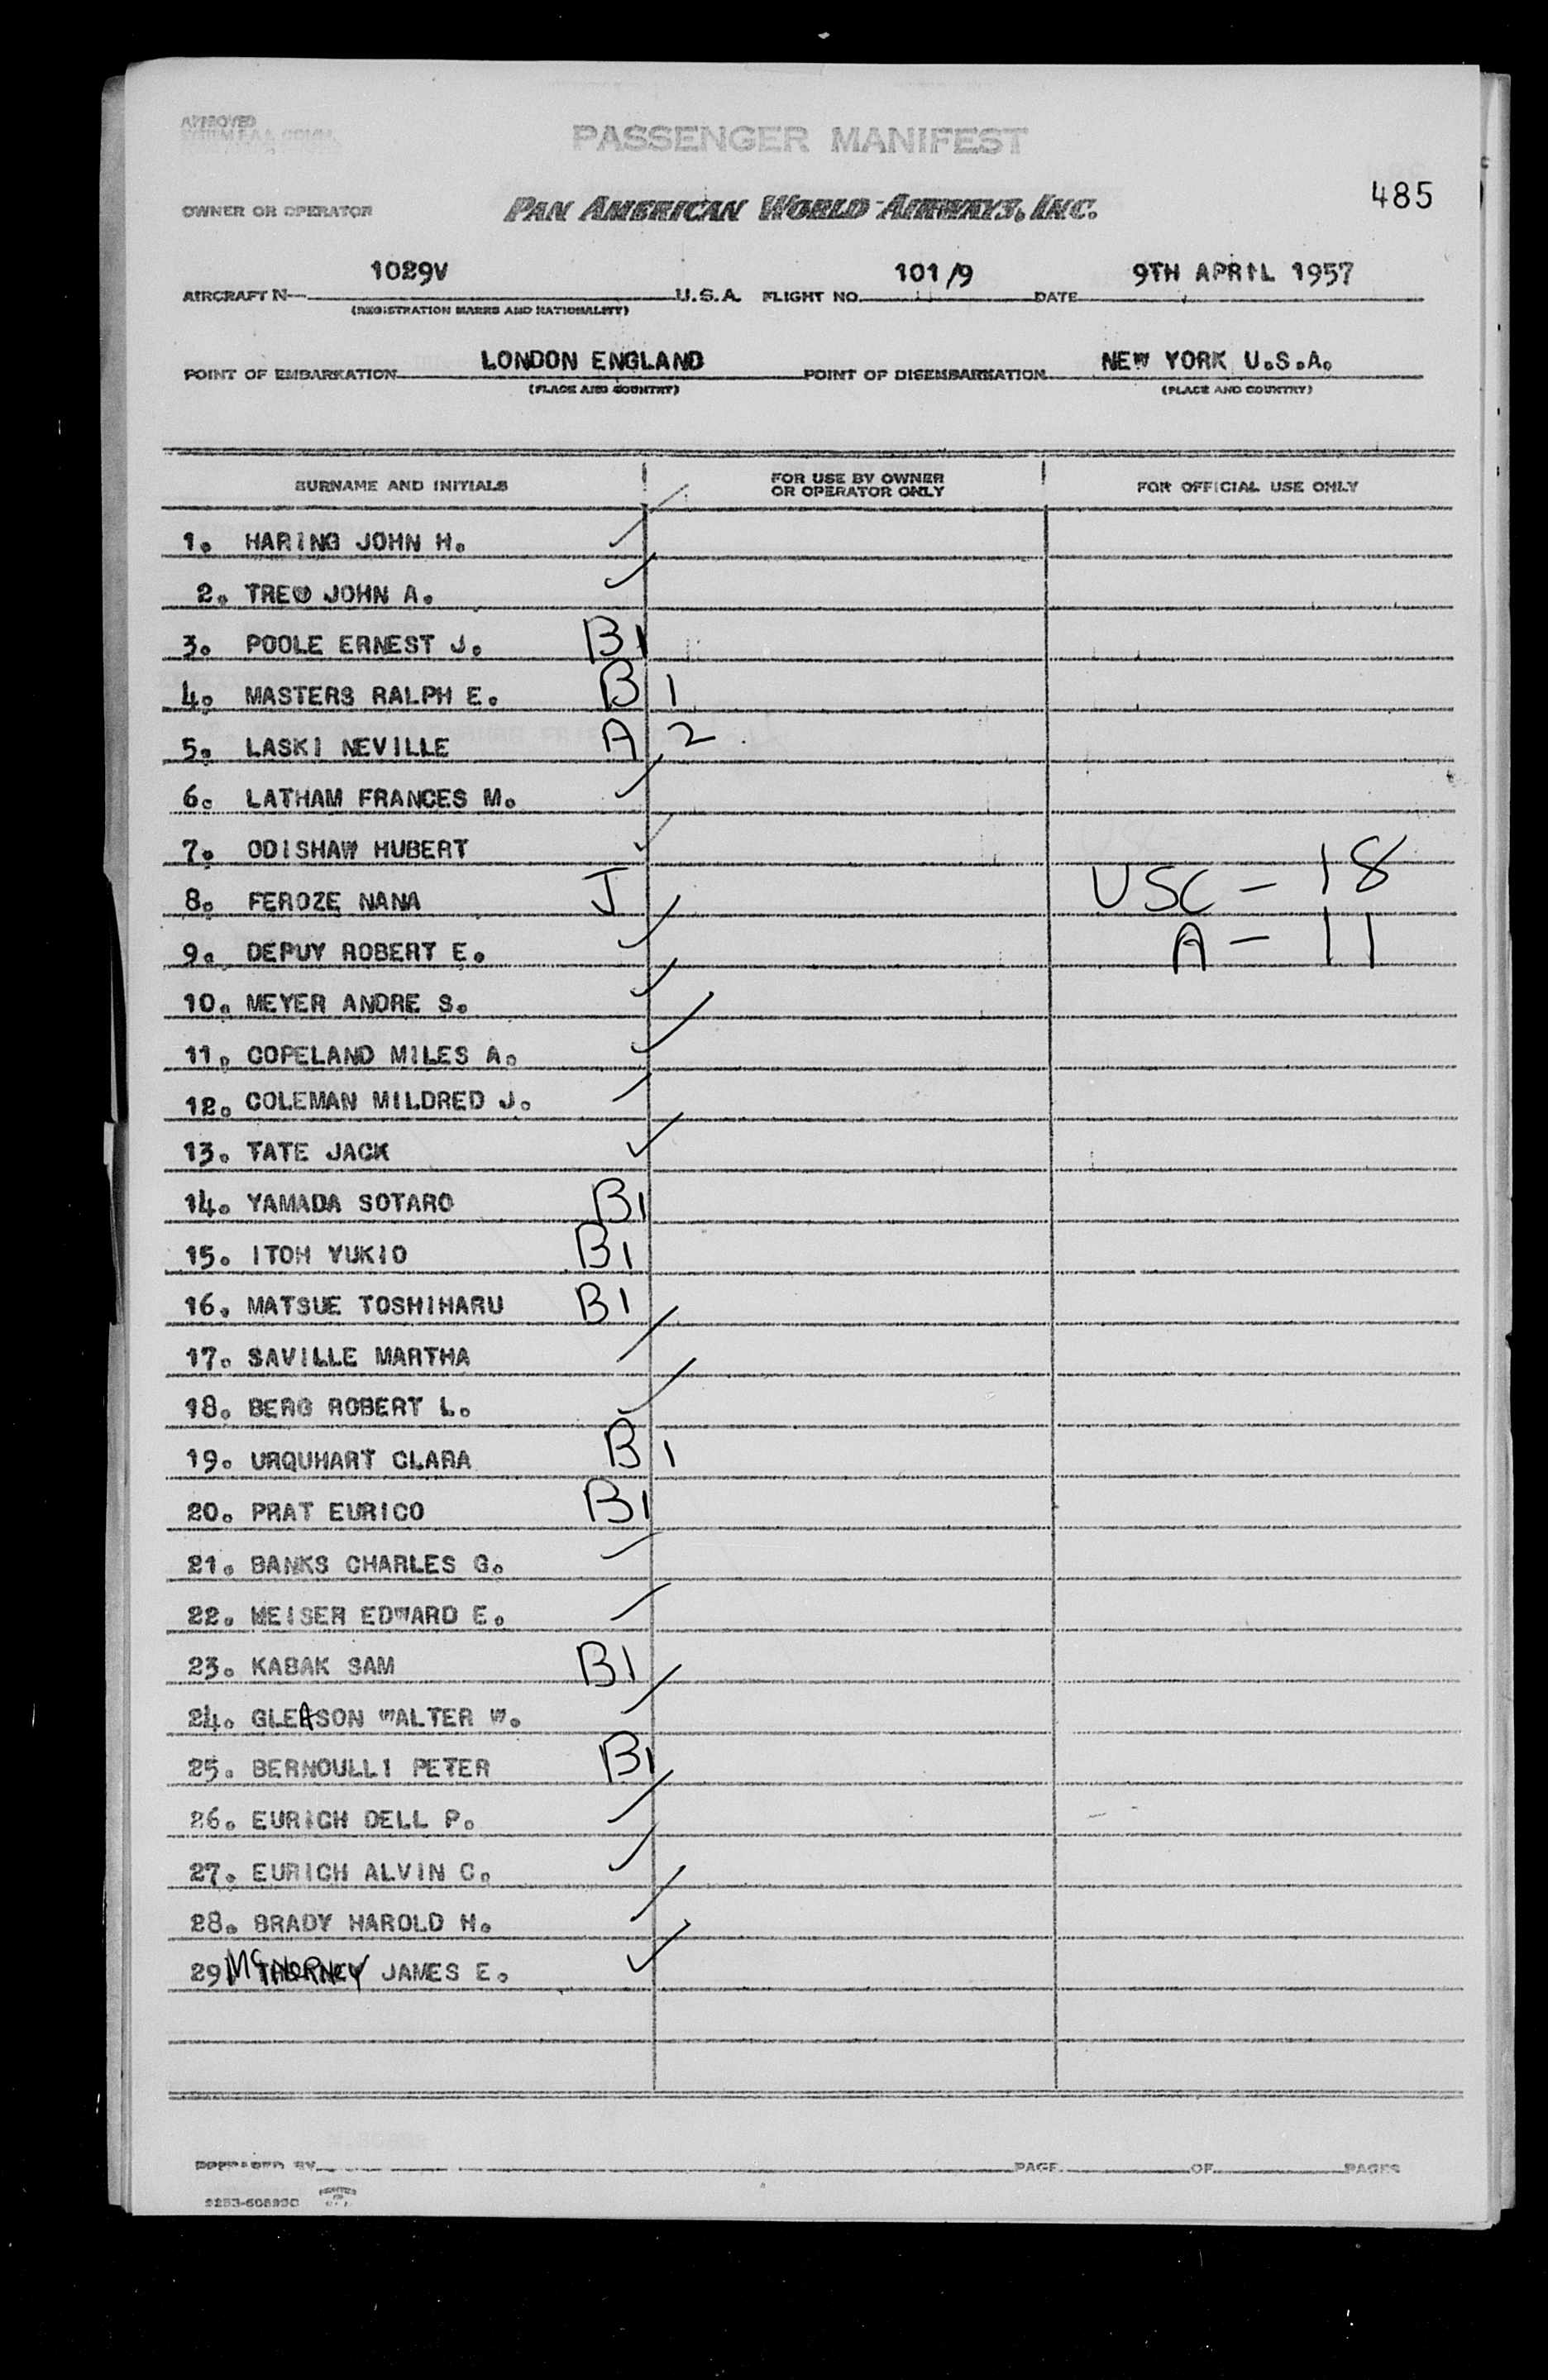 APPROVED
PASSENGER MANIFEST
485
OWNER OR OPERATOR PAN AMERICAN WORLD AIRWAYS, INC.
1029V 101/9 9TH APRIL 1957
AIRCRAFT N U.S.A. FLIGHT NO. DATE
(REGISTRATION MARKS AND NATIONALITY)
LONDON ENGLAND NEW YORK U.S.A.
POINT OF EMBARKATION POINT OF DISEMBARKATION
(PLACE AND COUNTRY) (PLACE AND COUNTRY)
SURNAME AND INITIALS FOR USE BY OWNER OR OPERATOR ONLY FOR OFFICIAL USE ONLY
1. HARING JOHN H. ✓
2. TREW JOHN A. ✓
3. POOLE ERNEST J. B1
4. MASTERS RALPH E. B 1
5. LASKI NEVILLE A 2
6. LATHAM FRANCES M. ✓
7. ODISHAW HUBERT ✓
8. FEROZE NANA J USC - 18
9. DEPUY ROBERT E. ✓ A - 11
10. MEYER ANDRE S. ✓
11. COPELAND MILES A. ✓
12. COLEMAN MILDRED J. ✓
13. TATE JACK ✓
14. YAMADA SOTARO B1
15. ITOH YUKIO B1
16. MATSUE TOSHIHARU B1
17. SAVILLE MARTHA ✓
18. BERG ROBERT L. ✓
19. URQUHART CLARA B 1
20. PRAT EURICO B1
21. BANKS CHARLES G. ✓
22. MEISER EDWARD E. ✓
23. KABAK SAM B1
24. GLEASON WALTER W. ✓
25. BERNOULLI PETER B1
26. EURICH DELL P. ✓
27. EURICH ALVIN C. ✓
28. BRADY HAROLD H. ✓
29 JAMES E. ✓
PREPARED BY PAGE OF PAGES